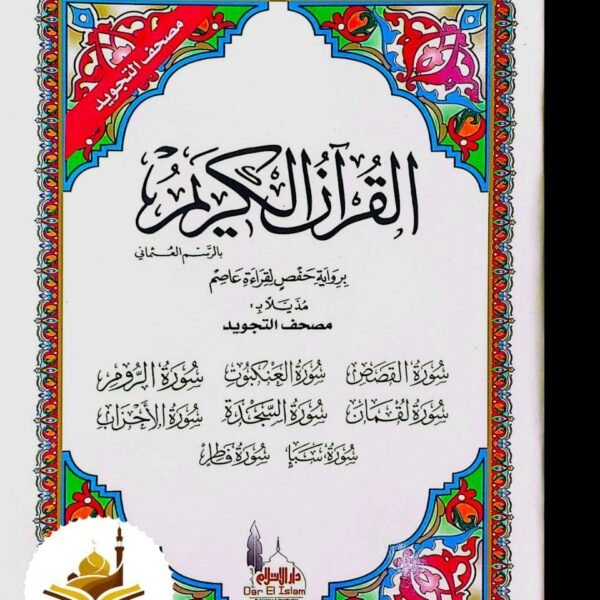 مصحف التجويد
القرآن الكريم
بالرسم العثماني
برواية حفص لقراءة عاصم
مذيلا بـ:
مصحف التجويد
سورة القصص سورة العنكبوت سورة الروم
سورة لقمان سورة السجدة سورة الأحزاب
سورة سبإ سورة فاطر
دار الإسلام
Dar El Islam